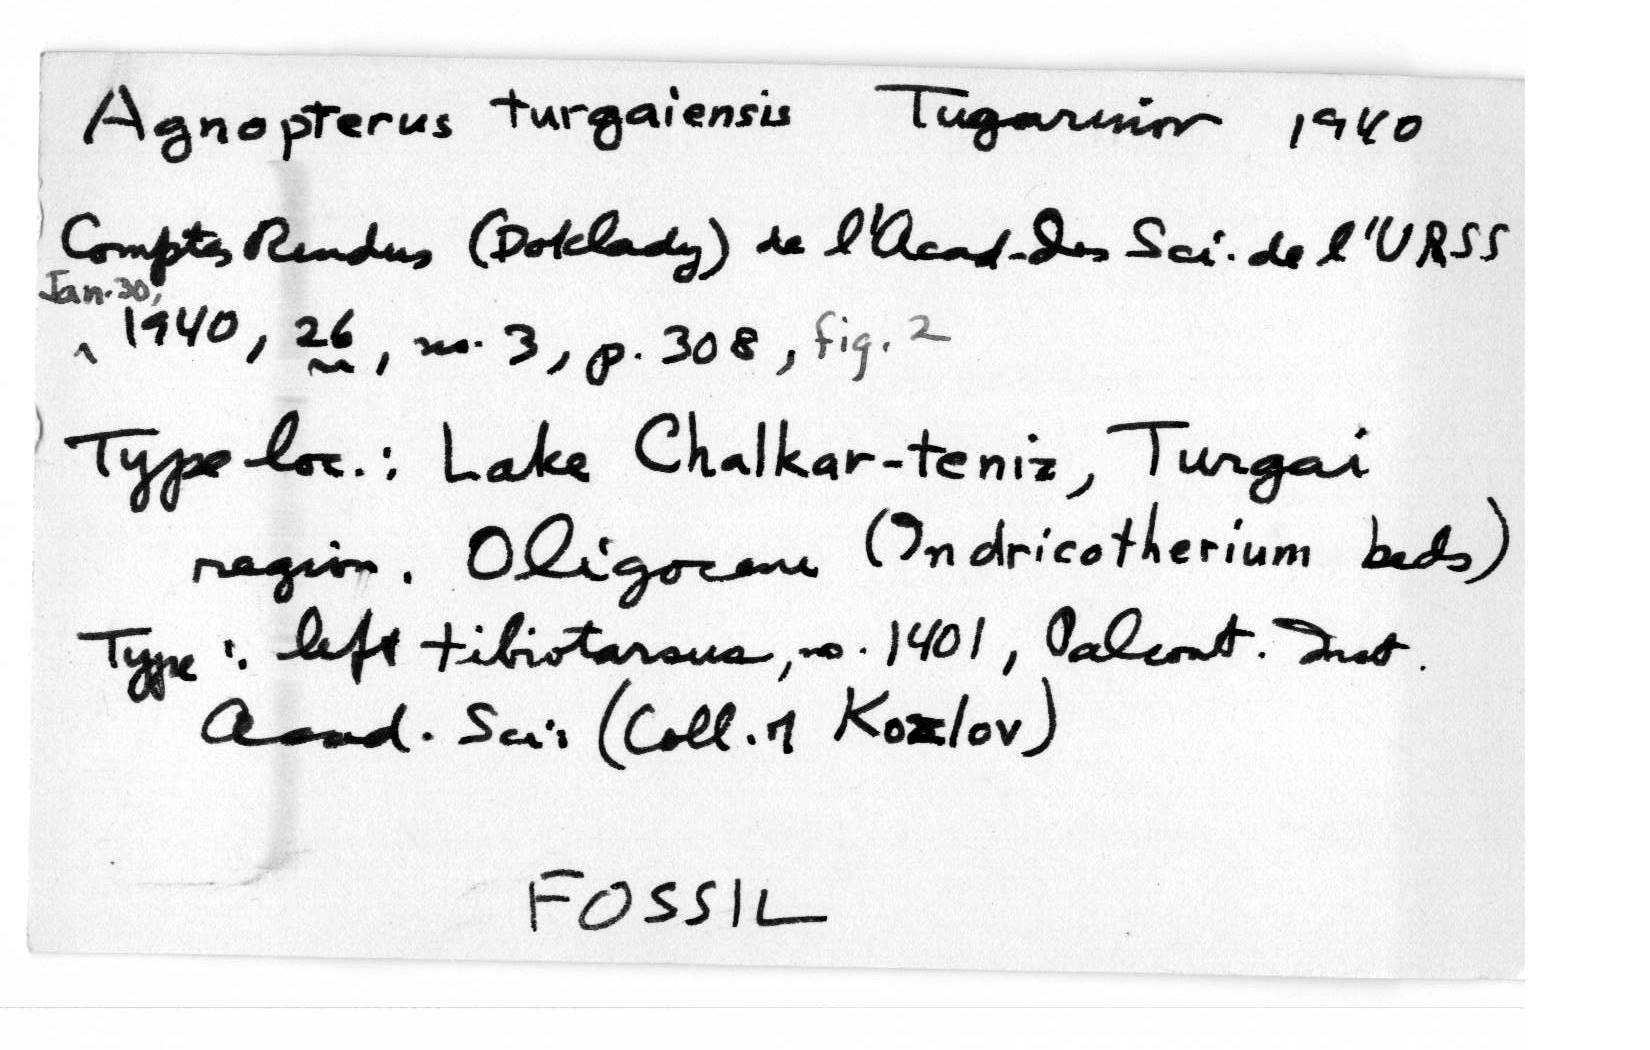 Agnopterus turgaiensis Tugarinov 1940
Comptes Rendus (Doklady) de l'Acad. des Sci. de l'URSS
Jan. 30,
^ 1940, 26, no. 3, p. 308, fig. 2
Type loc.: Lake Chalkar-teniz, Turgai
region. Oligocene (Indricotherium beds)
Type: left tibiotarsus, no. 1401, Paleont. Inst.
Acad. Sci. (Coll. of Kozlov)
FOSSIL